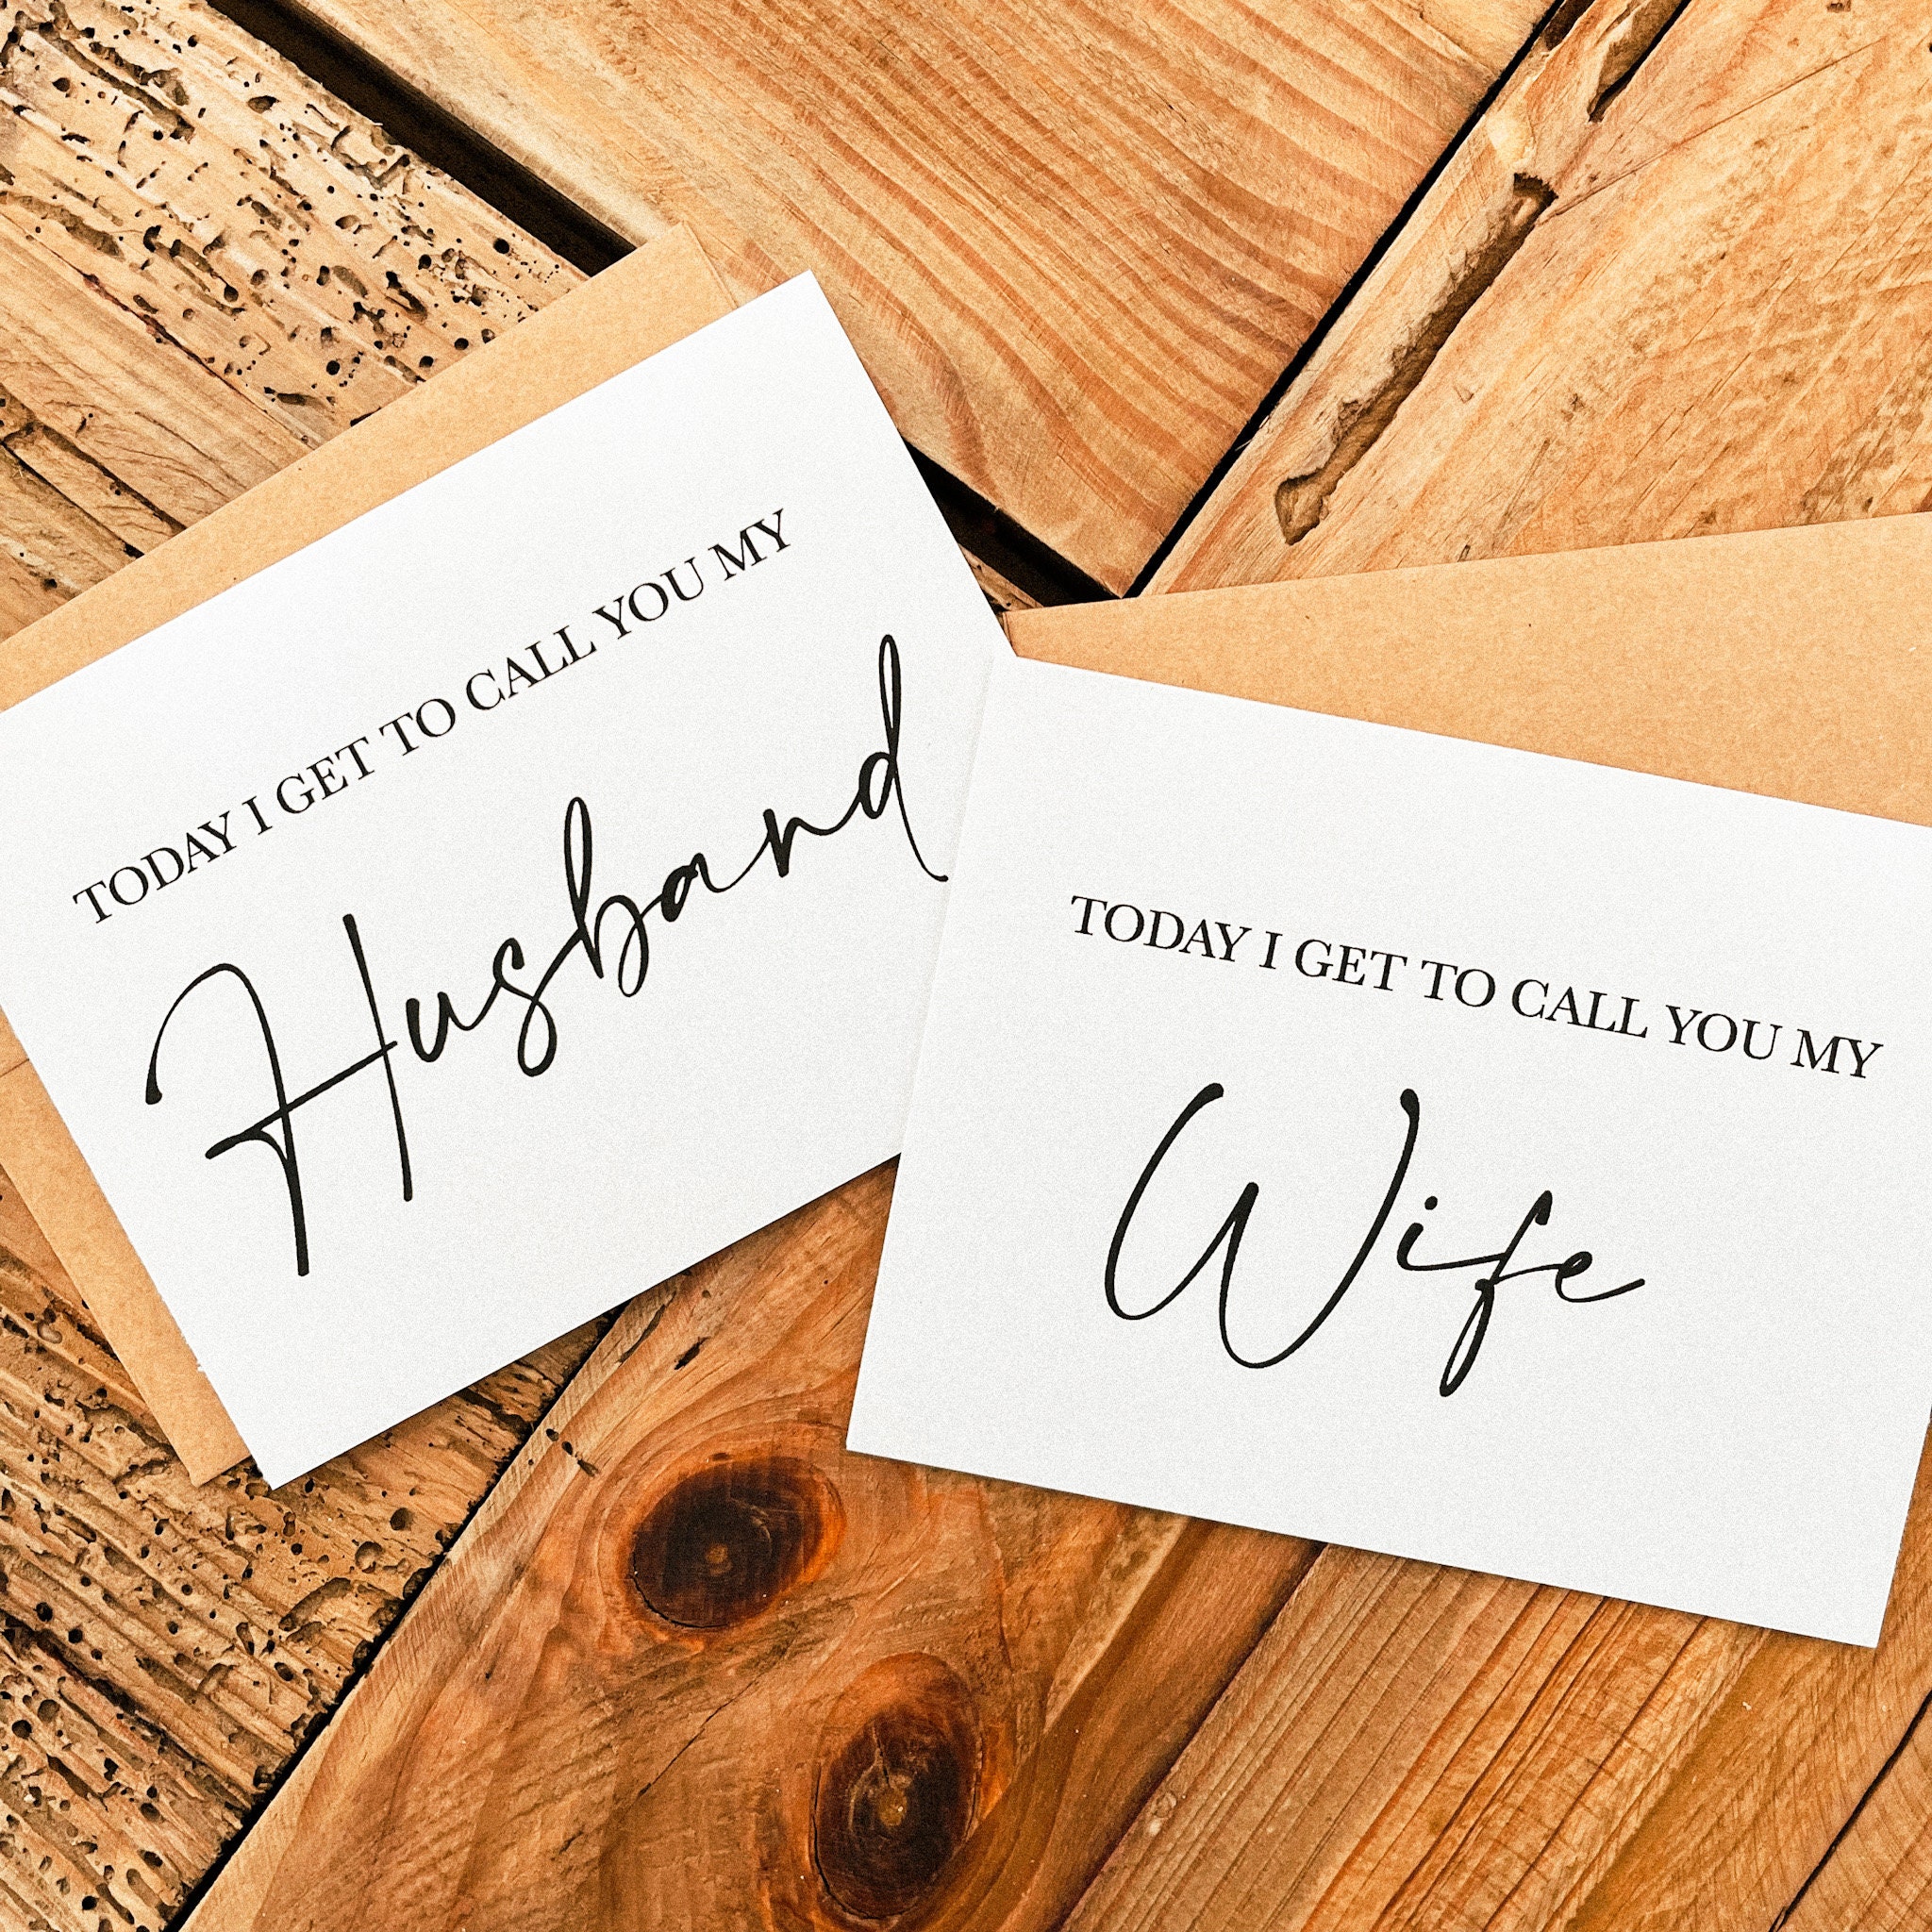 TODAY I GET TO CALL YOU MY
Husband
TODAY I GET TO CALL YOU MY
Wife